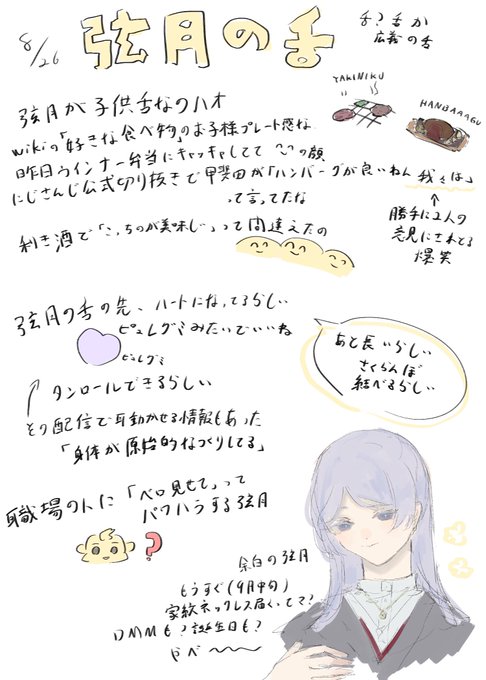 8/26
弦月の舌
舌?舌か
広義の舌
YAKINIKU
HANBAAAGU
弦月が子供舌なのハオ
wikiの「好きな食べ物」のお子様プレート感な
昨日ウインナー弁当にキャッキャしてて の顔
にじさんじ公式切り抜きで甲斐田が「ハンバーグが良いねん 我々は」
って言ってたな
↑
勝手に2人の
意見にされてる
爆笑
利き酒で「こっちのが美味しい」って間違えたの
弦月の舌の先、ハートになってるらしい
ピュレグミみたいでいいね
ピュレグミ
あと長いらしい
さくらんぼ
結べるらしい
↑タンロールできるらしい
その配信で耳動かせる情報もあった
「身体が原始的なつくりしてる」
職場の人に「ベロ見せて」って
パワハラする弦月
?
余白の弦月
もうすぐ(9月中旬)
家紋ネックレス届くってマ?
DMMも?誕生日も?
やべ〜〜